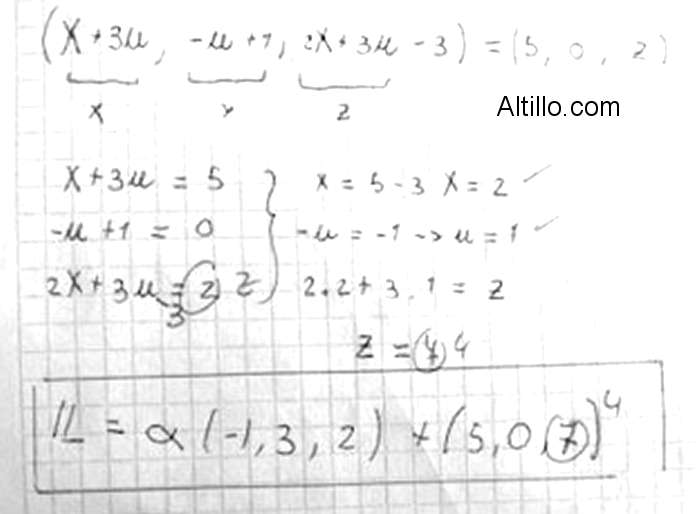 (x+3μ, -μ+1, 2x+3μ-3) = (5, 0, 2)
x y z
Altillo.com
x+3μ = 5 } x = 5-3 x = 2 ✓
-μ+1 = 0 -μ = -1 → μ = 1 ✓
2x+3μ = 2 z 2.2+3.1 = z
3
z = 7 4
IL = α(-1,3,2) + (5,0,7) 4